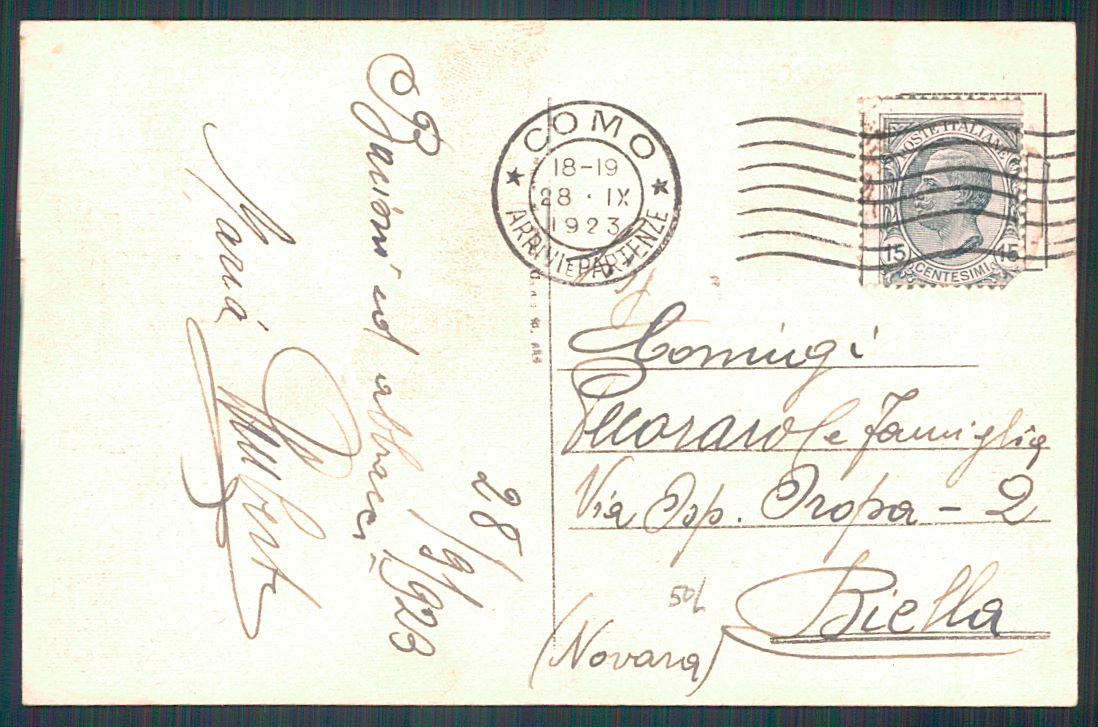 28/9/1923
Bacioni ed abbracci
Maria
COMO
18-19
28 · IX
1923
ARRIVI E PARTENZE
POSTE ITALIANE
15 15
CENTESIMI
Pecoraro e Famiglia
Via Osp. Oropa - 2
Biella
(Novara)
50/